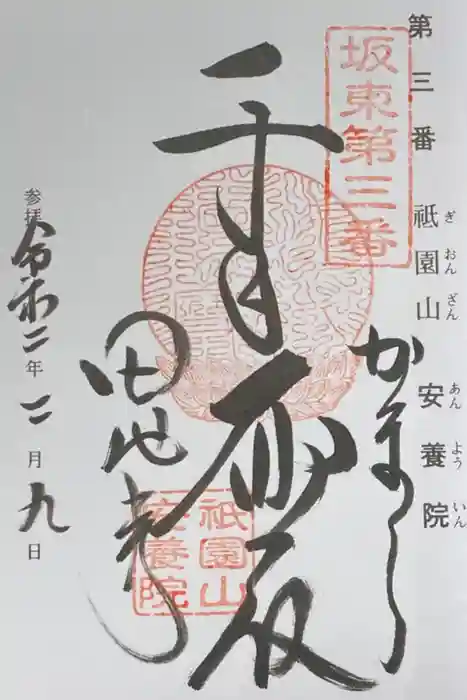 第三番 祇園山 安養院
ぎおんざん あんよういん
坂東第三番
かまくら
千手大殿
田代寺
祇園山
安養院
参拝
令和二年二月九日